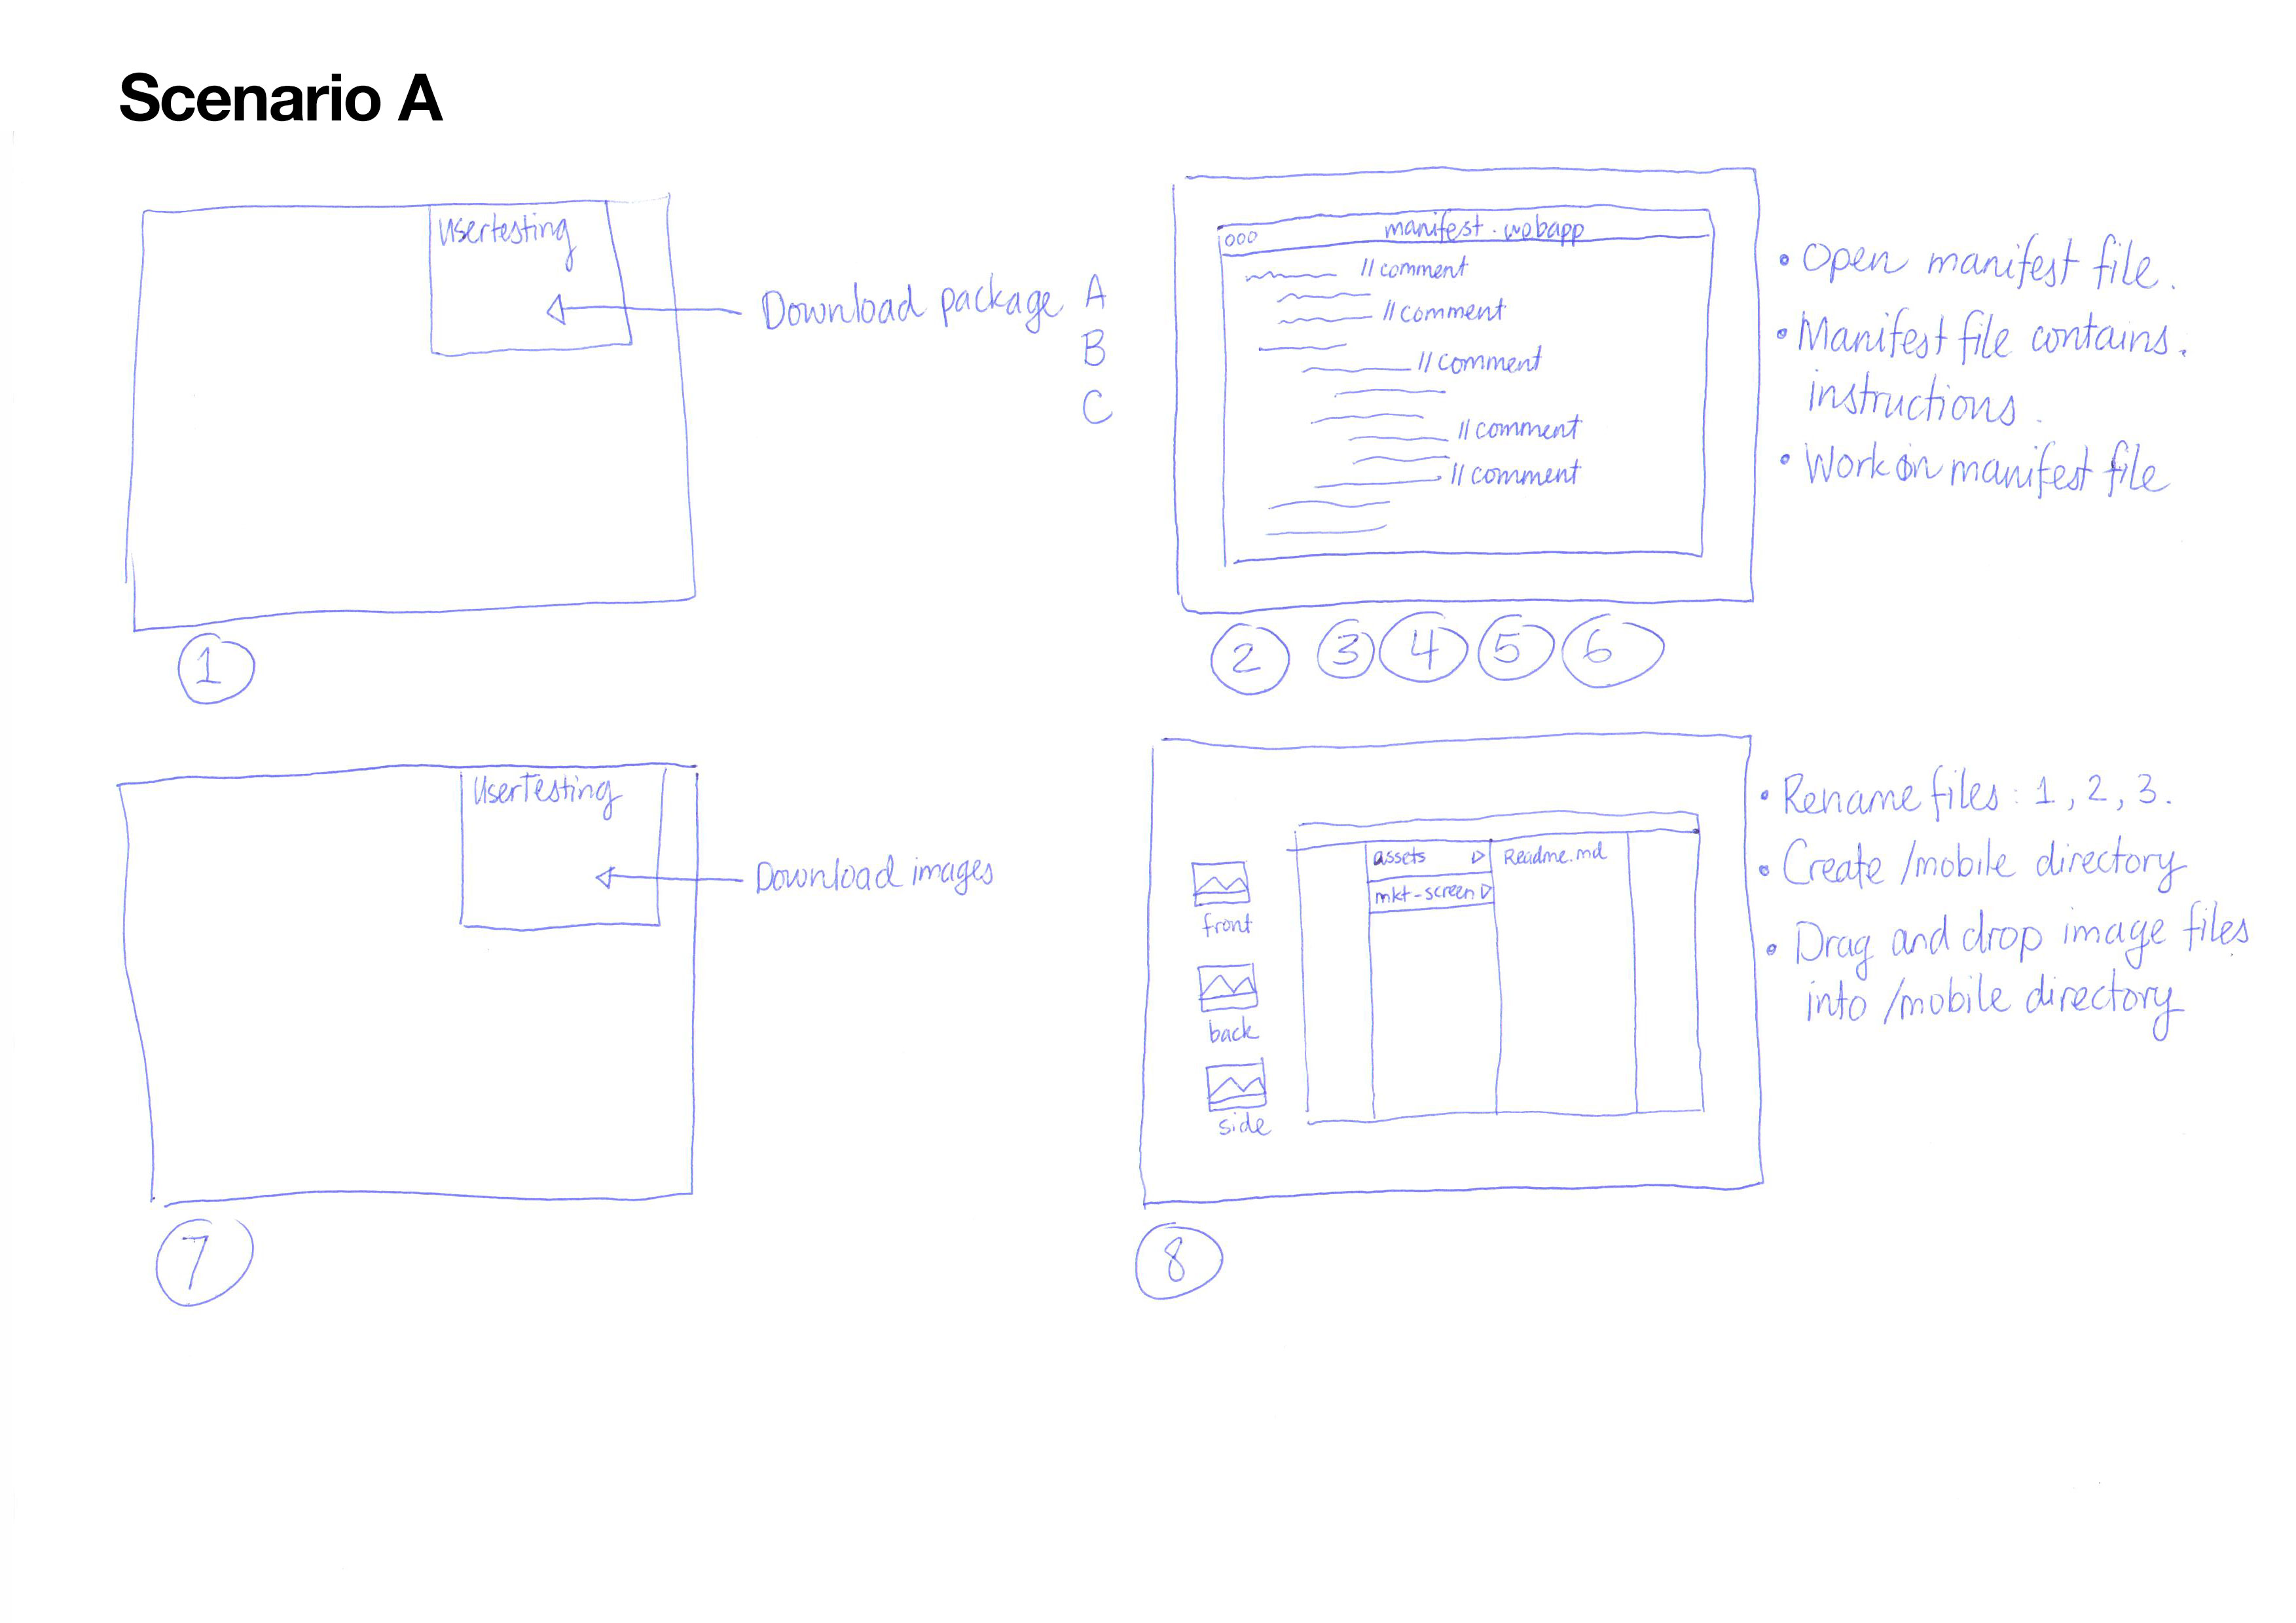 Scenario A
Usertesting
Download package A
B
C
1
ooo
manifest.webapp
// comment
// comment
// comment
// comment
// comment
• Open manifest file.
• Manifest file contains.
instructions.
• Work on manifest file
2 3 4 5 6
UserTesting
Download images
7
front
back
side
assets
mkt-screen
Readme.md
• Rename files: 1, 2, 3.
• Create /mobile directory
• Drag and drop image files
into /mobile directory
8